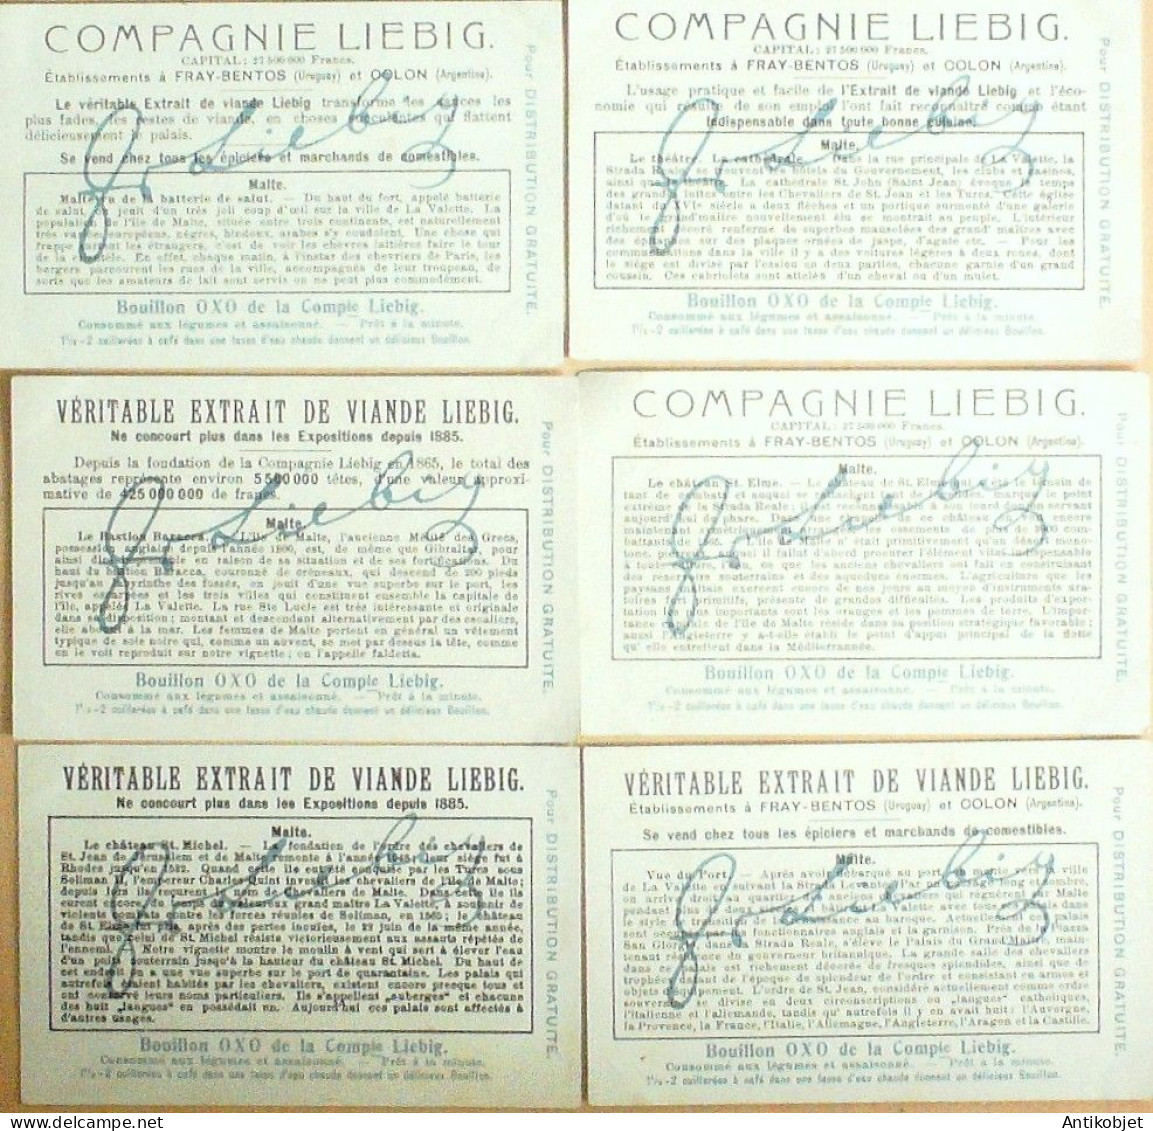 COMPAGNIE LIEBIG.
CAPITAL: 27 500 000 Francs.
Établissements à FRAY-BENTOS (Uruguay) et COLON (Argentine).
Le véritable Extrait de viande Liebig transforme les sauces les
plus fades, les restes de viande, en choses succulentes qui flattent
délicieusement le palais.
Se vend chez tous les épiciers et marchands de comestibles.
Malte.
Malte vu de la batterie de salut. — Du haut du fort, appelé batterie
de salut, on jouit d'un très joli coup d'œil sur la ville de La Valette. La
population de l'île de Malte, située entre trois continents, est naturellement
très variée: européens, nègres, hindous, arabes s'y coudoient. Une chose qui
frappe surtout les étrangers, c'est de voir les chèvres laitières faire le tour
de la clientèle. En effet, chaque matin, à l'instar des chevriers de Paris, les
bergers parcourent les rues de la ville, accompagnés de leur troupeau, de
sorte que les amateurs de lait sont servis on ne peut plus commodément.
Bouillon OXO de la Compie Liebig.
Consommé aux légumes et assaisonné. — Prêt à la minute.
1½-2 cuillerées à café dans une tasse d'eau chaude donnent un délicieux Bouillon.
Pour DISTRIBUTION GRATUITE.
J v Liebig
COMPAGNIE LIEBIG.
CAPITAL: 27 500 000 Francs.
Établissements à FRAY-BENTOS (Uruguay) et COLON (Argentine).
L'usage pratique et facile de l'Extrait de viande Liebig et l'éco-
nomie qui résulte de son emploi l'ont fait reconnaître comme étant
indispensable dans toute bonne cuisine.
Malte.
Le théâtre. La cathédrale. — Dans la rue principale de La Valette, la
Strada Reale, se trouvent les hôtels du Gouvernement, les clubs et casinos,
ainsi que le théâtre. La cathédrale St. John (Saint Jean) évoque le temps
des grandes luttes entre les Chevaliers de St. Jean et les Turcs. Cette église
datant du XVIe siècle a deux flèches et un portique surmonté d'une galerie
d'où le grand maître nouvellement élu se montrait au peuple. L'intérieur
richement décoré renferme de superbes mausolées des grands maîtres avec
des épitaphes sur des plaques ornées de jaspe, d'agate etc. — Pour les
communications dans la ville il y a des voitures légères à deux roues, dont
le siège est divisé par l'essieu en deux parties, chacune garnie d'un grand
coussin. Ces cabriolets sont attelés d'un cheval ou d'un mulet.
Bouillon OXO de la Compie Liebig.
Consommé aux légumes et assaisonné. — Prêt à la minute.
1½-2 cuillerées à café dans une tasse d'eau chaude donnent un délicieux Bouillon.
Pour DISTRIBUTION GRATUITE.
J v Liebig
VÉRITABLE EXTRAIT DE VIANDE LIEBIG.
Ne concourt plus dans les Expositions depuis 1885.
Depuis la fondation de la Compagnie Liebig en 1865, le total des
abatages représente environ 5 500 000 têtes, d'une valeur approxi-
mative de 425 000 000 de francs.
Malte.
Le Bastion Baracca. — L'île de Malte, l'ancienne Mélité des Grecs,
possession anglaise depuis l'année 1800, est, de même que Gibraltar, pour
ainsi dire imprenable en raison de sa situation et de ses fortifications. Du
haut du bastion Baracca, couronné de créneaux, qui descend de 200 pieds
jusqu'au labyrinthe des fossés, on jouit d'une vue superbe sur le port, les
rives escarpées et les trois villes qui constituent ensemble la capitale de
l'île, appelée La Valette. La rue Ste Lucie est très intéressante et originale
dans sa disposition; montant et descendant alternativement par des escaliers,
elle aboutit à la mer. Les femmes de Malte portent en général un vêtement
typique de soie noire qui, comme un auvent, se met par dessus la tête, comme
on le voit reproduit sur notre vignette; on l'appelle faldetta.
Bouillon OXO de la Compie Liebig.
Consommé aux légumes et assaisonné. — Prêt à la minute.
1½-2 cuillerées à café dans une tasse d'eau chaude donnent un délicieux Bouillon.
Pour DISTRIBUTION GRATUITE.
J v Liebig
COMPAGNIE LIEBIG.
CAPITAL: 27 500 000 Francs.
Établissements à FRAY-BENTOS (Uruguay) et COLON (Argentine).
Malte.
Le château St. Elme. — Le château de St. Elme qui a été le témoin de
tant de combats et auquel se rattachent tant de souvenirs, marque le point
extrême de la Strada Reale; il est reconnaissable à son tour ronde servant
aujourd'hui de phare. Dans une des cours de ce château on voit encore
maintenant les
battants de 1565. — L'île n'était primitivement qu'un désert mono-
tone, pour lequel il fallut d'abord procurer l'élément vital indispensable
à toute terre, l'eau, ce que les anciens chevaliers ont fait en construisant
des réservoirs souterrains et des aqueducs énormes. L'agriculture que les
paysans maltais exercent encore de nos jours au moyen d'instruments ara-
toires fort primitifs, présente de grandes difficultés. Les produits d'expor-
tation les plus importants sont les oranges et les pommes de terre. L'impor-
tance capitale de l'île de Malte réside dans sa position stratégique favorable;
aussi l'Angleterre y a-t-elle établi le point d'appui principal de la flotte
qu'elle entretient dans la Méditerranée.
Bouillon OXO de la Compie Liebig.
Consommé aux légumes et assaisonné. — Prêt à la minute.
1½-2 cuillerées à café dans une tasse d'eau chaude donnent un délicieux Bouillon.
Pour DISTRIBUTION GRATUITE.
J v Liebig
VÉRITABLE EXTRAIT DE VIANDE LIEBIG.
Ne concourt plus dans les Expositions depuis 1885.
Malte.
Le château St. Michel. — La fondation de l'ordre des chevaliers de
St. Jean de Jérusalem et de Malte remonte à l'année 1048. Leur siège fut à
Rhodes jusqu'en 1522. Quand cette île eut été conquise par les Turcs sous
Soliman II, l'empereur Charles Quint investit les chevaliers de l'île de Malte;
depuis lors ils reçurent le nom de chevaliers de Malte. Dans cette île ils
eurent encore, du temps du valeureux grand maître La Valette, à soutenir de
violents combats contre les forces réunies de Soliman, en 1565; le château
de St. Elme fut pris, après des pertes inouïes, le 22 juin de la même année,
tandis que celui de St. Michel résista victorieusement aux assauts répétés de
l'ennemi. — Notre vignette montre le moulin à vent qui sert à élever l'eau
d'un puits souterrain jusqu'à la hauteur du château St. Michel. Du haut de
cet endroit on a une vue superbe sur le port de quarantaine. Les palais qui
autrefois étaient habités par les chevaliers, existent encore presque tous et
ont conservé leurs noms particuliers. Ils s'appellent „auberges" et chacune
des huit „langues" en possédait un. Aujourd'hui ces palais sont affectés à
d'autres usages.
Bouillon OXO de la Compie Liebig.
Consommé aux légumes et assaisonné. — Prêt à la minute.
1½-2 cuillerées à café dans une tasse d'eau chaude donnent un délicieux Bouillon.
Pour DISTRIBUTION GRATUITE.
J v Liebig
VÉRITABLE EXTRAIT DE VIANDE LIEBIG.
Établissements à FRAY-BENTOS (Uruguay) et COLON (Argentine).
Se vend chez tous les épiciers et marchands de comestibles.
Malte.
Vue du Port. — Après avoir débarqué au port, on monte vers
de La Valette en suivant la Strada Levante, l'art long et sombre,
on arrive droit au quartier des anciens chevaliers qui régnèrent par Malte
pendant plus de
le style de transition de la renaissance au baroque. Actuellement ces palais
sont occupés par des fonctionnaires anglais et la garnison. Près de la Piazza
San Giorgio, dans la Strada Reale, s'élève le Palais du Grand Maître, main-
tenant résidence du gouverneur britannique. La grande salle des chevaliers
dans ce palais est richement décorée de fresques splendides, ainsi que de
trophées datant de l'époque de splendeur de l'ordre et consistant en armes et
objets d'équipement. L'ordre de St. Jean, considéré actuellement comme ordre
souverain, se divise en deux circonscriptions ou „langues" catholiques,
l'italienne et l'allemande, tandis qu'autrefois il y en avait huit: l'Auvergne,
la Provence, la France, l'Italie, l'Allemagne, l'Angleterre, l'Aragon et la Castille.
Bouillon OXO de la Compie Liebig.
Consommé aux légumes et assaisonné. — Prêt à la minute.
1½-2 cuillerées à café dans une tasse d'eau chaude donnent un délicieux Bouillon.
Pour DISTRIBUTION GRATUITE.
J v Liebig
Antikobjet